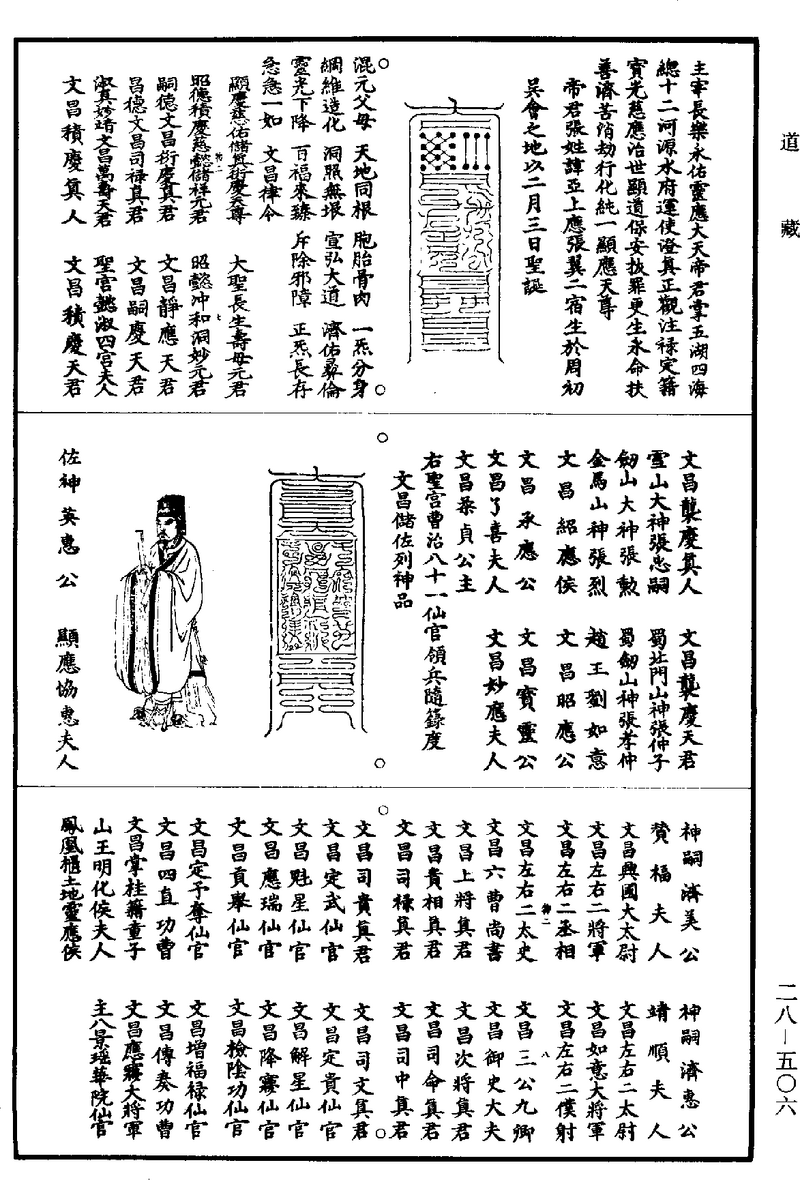 道藏
主宰長樂永佑靈應大天帝君掌五湖四海
總十二河源水府運使證真正觀注祿定籍
寶光慈應治世顯道保安拔罪更生永命扶
善濟苦消劫行化純一顯應天尊
帝君張姓諱亞上應張翼二宿生於周初
吳會之地以二月三日聖誕
混元父母 天地同根 胞胎骨肉 一炁分身
綱維造化 洞照無垠 宣弘大道 濟佑彝倫
靈光下降 百福來臻 斥除邪障 正炁長存
急急一如 文昌律令
顯慶慈佑儲真衍慶天尊 大聖長生壽母元君
昭德積慶慈懿儲祥元君 昭懿冲和洞妙元君
嗣德文昌衍慶真君 文昌靜應天君
昌德文昌司祿真君 文昌嗣慶天君
淑真妙靖文昌萬壽天君 聖宮懿淑四宮夫人
文昌積慶真人 文昌積慶天君
文昌襲慶真人 文昌襲慶天君
雪山大神張忠嗣 蜀北門山神張仲子
劒山大神張勲 蜀劒山神張孝仲
金馬山神張烈 趙王劉如意
文昌紹應侯 文昌昭應公
文昌承應公 文昌寶靈公
文昌了喜夫人 文昌妙應夫人
文昌柔貞公主
右聖宮曹治八十一仙官領兵隨籙度
文昌儲佐列神品
佐神英惠公 顯應協惠夫人
神嗣濟美公 神嗣濟惠公
贊福夫人 靖順夫人
文昌興國大太尉 文昌左右二太尉
文昌左右二將軍 文昌如意大將軍
文昌左右二丞相 文昌左右二僕射
文昌左右二太史 文昌三公九卿
文昌六曹尚書 文昌御史大夫
文昌上將真君 文昌次將真君
文昌貴相真君 文昌司命真君
文昌司祿真君 文昌司中真君
文昌司貴真君 文昌司文真君
文昌定武仙官 文昌定貴仙官
文昌魁星仙官 文昌解星仙官
文昌應瑞仙官 文昌降霧仙官
文昌貢舉仙官 文昌檢陰功仙官
文昌定予奪仙官 文昌增福祿仙官
文昌四直功曹 文昌傳奏功曹
文昌掌桂籍童子 文昌應霧大將軍
山王明化侯夫人 主八景瑤華院仙官
鳳凰櫃土地靈應侯
二八—五〇六